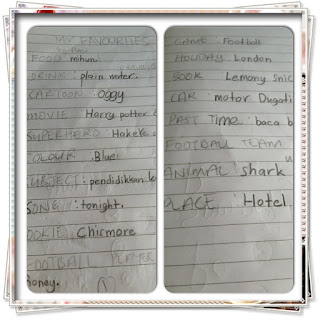 MY FAVOURITES
FOOD: mihun.
DRINK: plain water.
CARTOON: Oggy
MOVIE: Harry potter
SUPERHERO: Hakeye.
COLOUR: Blue.
SUBJECT: pendidikkan
SONG: tonight.
COOKIE Chismore
FOOTBALL PLAYER
Rooney.
GAME: Football
HOLIDAY: London
BOOK: Lemony Snic
CAR: motor Dugati
PAST TIME: baca b
FOOTBALL TEAM
ANIMAL: shark
PLACE: Hotel.